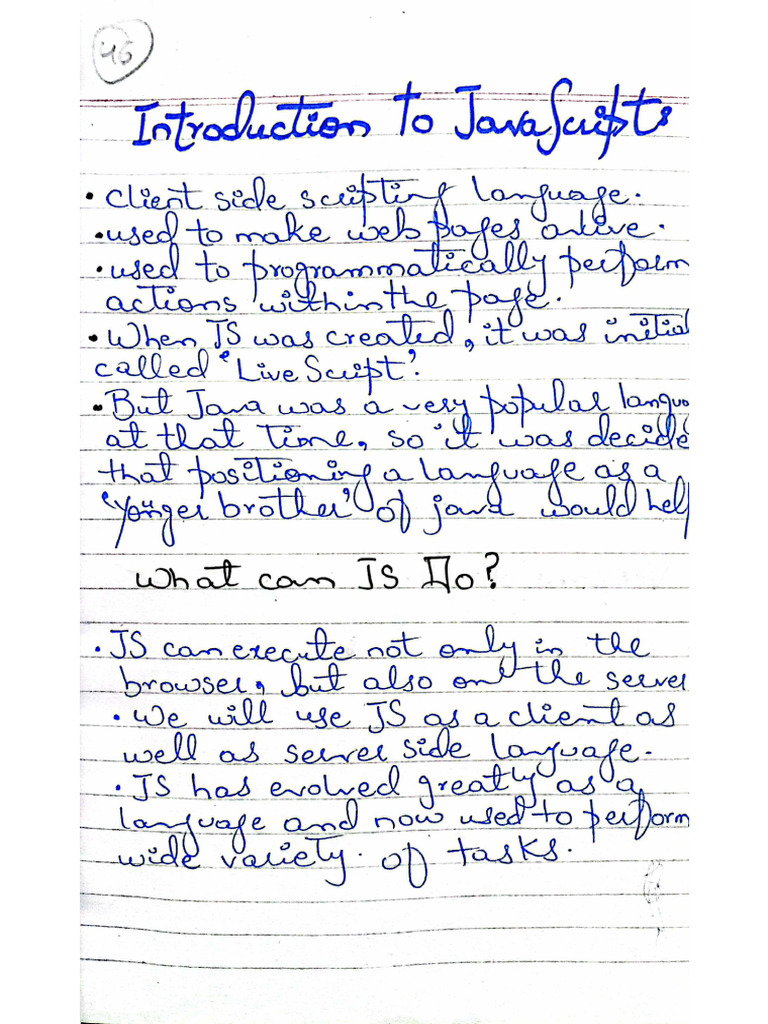 46
Introduction to JavaScript:
• client side scripting language.
• used to make web pages alive.
• used to programmatically perform
actions within the page.
• When JS was created, it was initial
called 'LiveScript'.
• But Java was a very popular langu
at that time, so it was decide
that positioning a language as a
'yonger brother' of java would help
What can JS Do?
• JS can execute not only in the
browser, but also on the server
• We will use JS as a client as
well as server side language.
• JS has evolved greatly as a
language and now used to perform
wide variety of tasks.